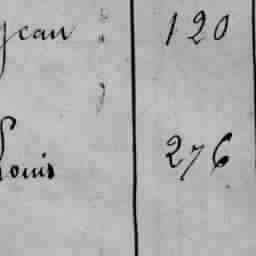 Jean 120
Louis 276